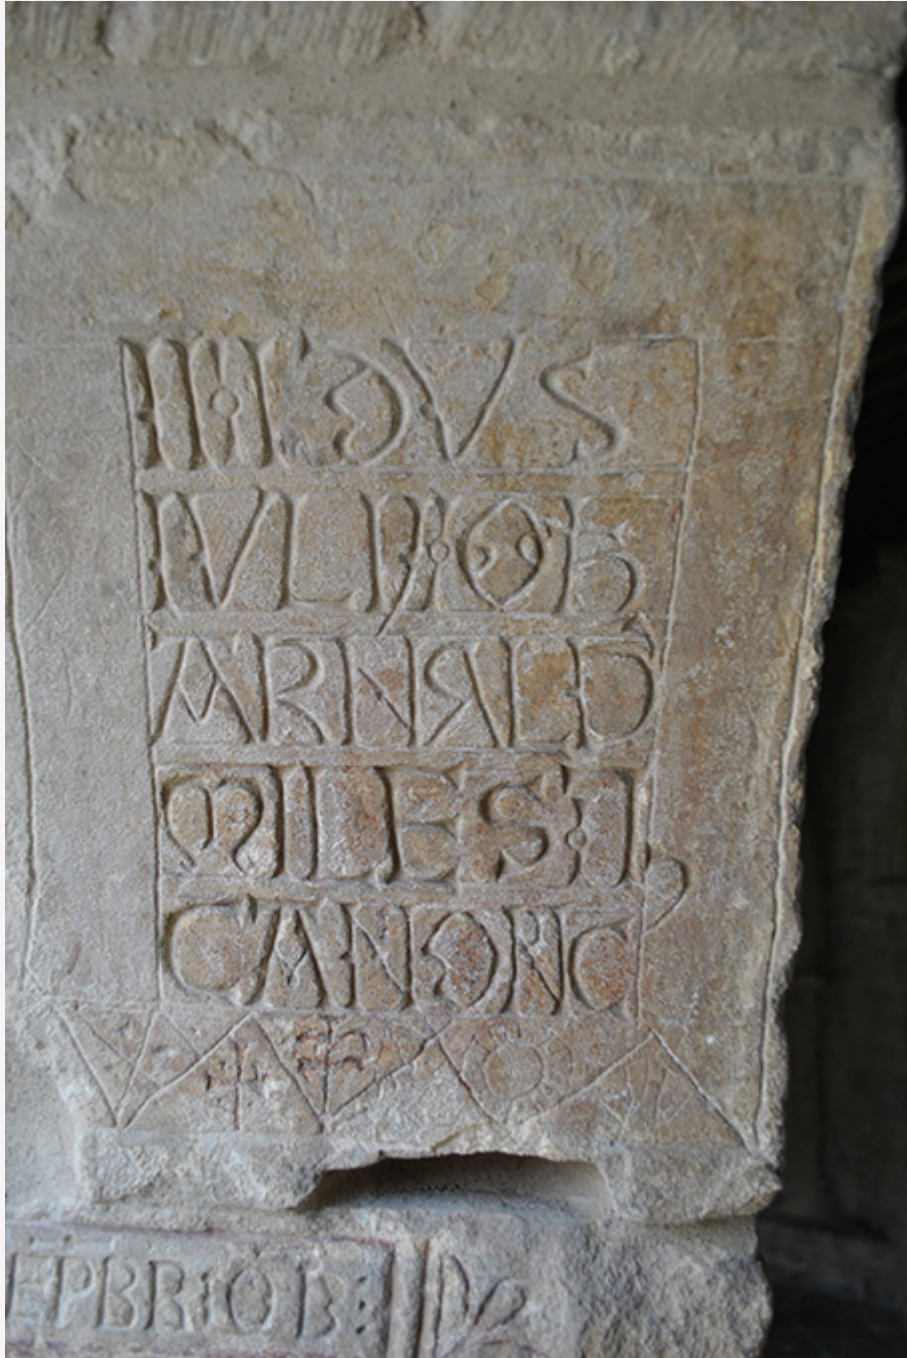 III : IDVS
IVLII : OB
ARNALD
MILES : I
CANONC
EPBR : OB :